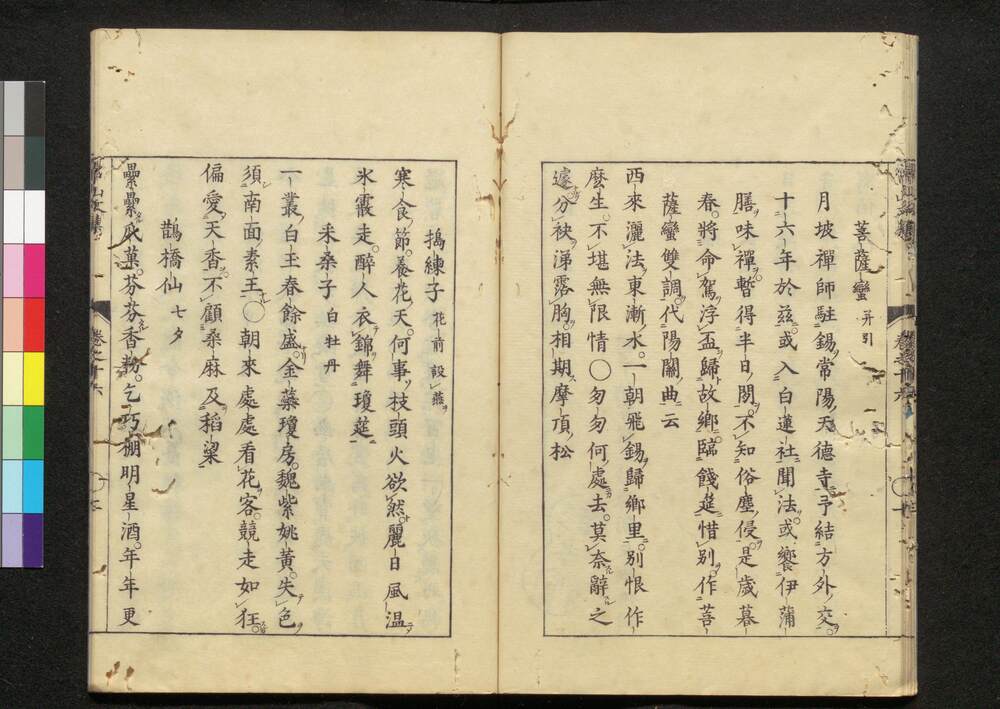 菩薩蠻 并引
月坡禪師駐錫常陽天德寺予結方外交
十六年於茲或入白蓮社聞法或饗伊蒲
膳味禪暫得半日閒不知俗塵侵是歲暮
春將命駕浮盃歸故鄉臨餞筵惜別作菩
薩蠻雙調代陽關曲云
西來灑法東漸水一朝飛錫歸鄉里別恨作
麼生不堪無限情〇匆匆何處去莫奈辭之
遽分袂涕露胸相期摩頂松
搗練子 花前設燕
寒食節養花天何事枝頭火欲然麗日風温
氷霰走醉人衣錦舞瓊筵
采桑子 白牡丹
一叢白玉春餘盛金蘂瓊房魏紫姚黃失色
須南面素王〇朝來處處看花客競走如狂
偏愛天香不顧桑麻及稻粱
鵲橋仙 七夕
纍纍瓜菓芬芬香粉乞巧棚明星酒年年更
卷之十六